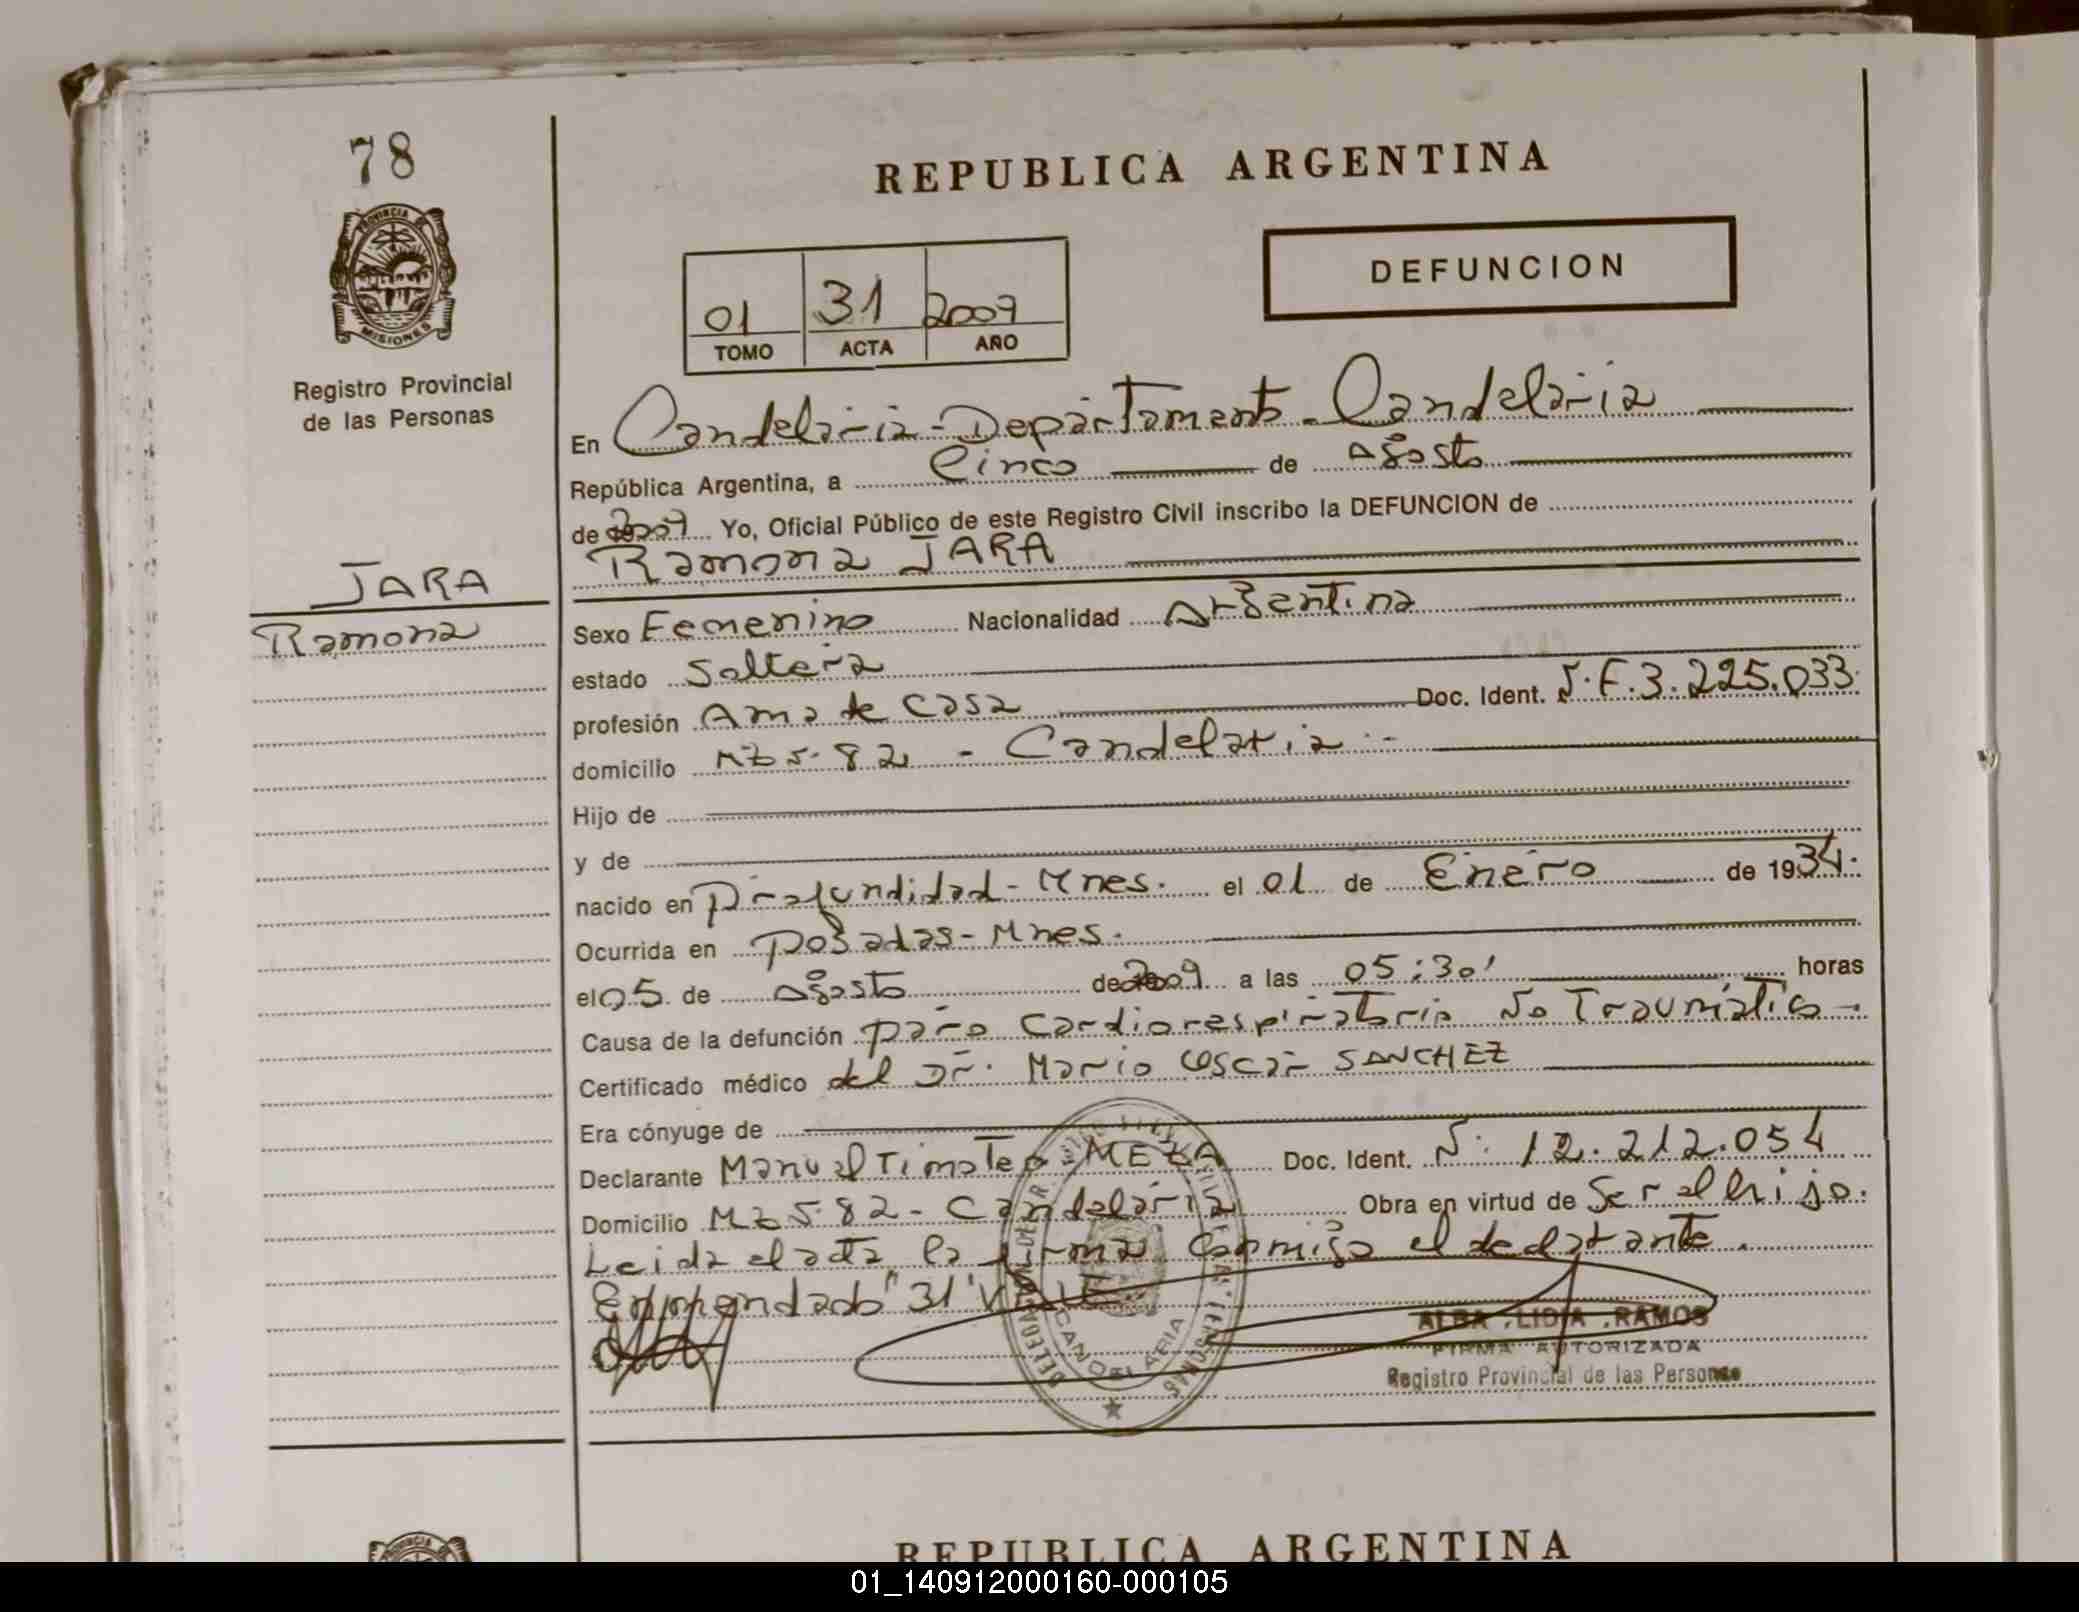 78
PROVINCIA DE
MISIONES
Registro Provincial
de las Personas
JARA
Ramona
REPUBLICA ARGENTINA
DEFUNCION
01 31 2009
TOMO ACTA AÑO
En Candelaria - Departamento - Candelaria
República Argentina, a Cinco de Agosto
de 2009 Yo, Oficial Público de este Registro Civil inscribo la DEFUNCION de
Ramona JARA
Sexo Femenino Nacionalidad Argentina
estado Soltera
profesión Ama de casa Doc. Ident. N.F.3.225.033
domicilio Mz 5-82 - Candelaria.-
Hijo de
y de
nacido en Profundidad - Mnes. el 01 de Enero de 1934.
Ocurrida en Posadas - Mnes.
el 05 de Agosto de 2009 a las 05:30' horas
Causa de la defunción paro cardiorespiratorio No Traumático.
Certificado médico del Dr. Mario Oscar SANCHEZ
Era cónyuge de
Declarante Manuel Timoteo MEZA Doc. Ident. N: 12.212.054
Domicilio Mz 5-82 - Candelaria Obra en virtud de Ser el hijo.
Leida el acta, la firma conmigo el declarante.
Enmendado "31" VALE.
CANDELARIA
ALBA LIDIA RAMOS
FIRMA AUTORIZADA
Registro Provincial de las Personas
REPUBLICA ARGENTINA
01_140912000160-000105